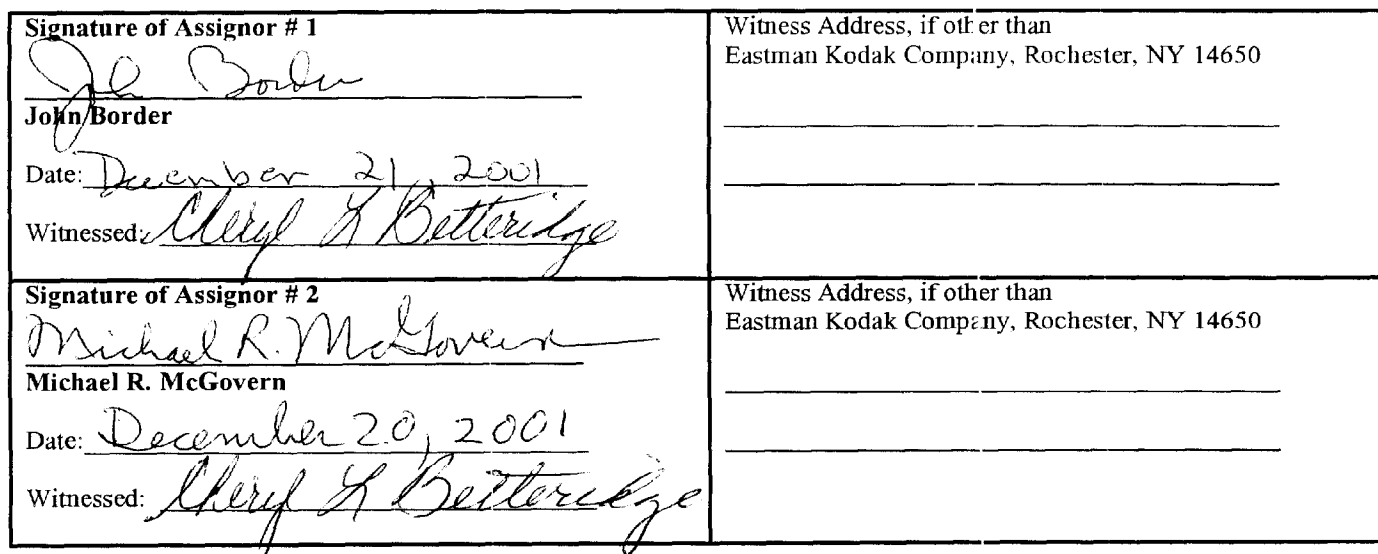 Signature of Assignor # 1
John Border
John Border
Date: December 21, 2001
Witnessed: Cheryl L Betteridge
Witness Address, if other than
Eastman Kodak Company, Rochester, NY 14650
Signature of Assignor # 2
Michael R. McGovern
Michael R. McGovern
Date: December 20, 2001
Witnessed: Cheryl L Betteridge
Witness Address, if other than
Eastman Kodak Company, Rochester, NY 14650